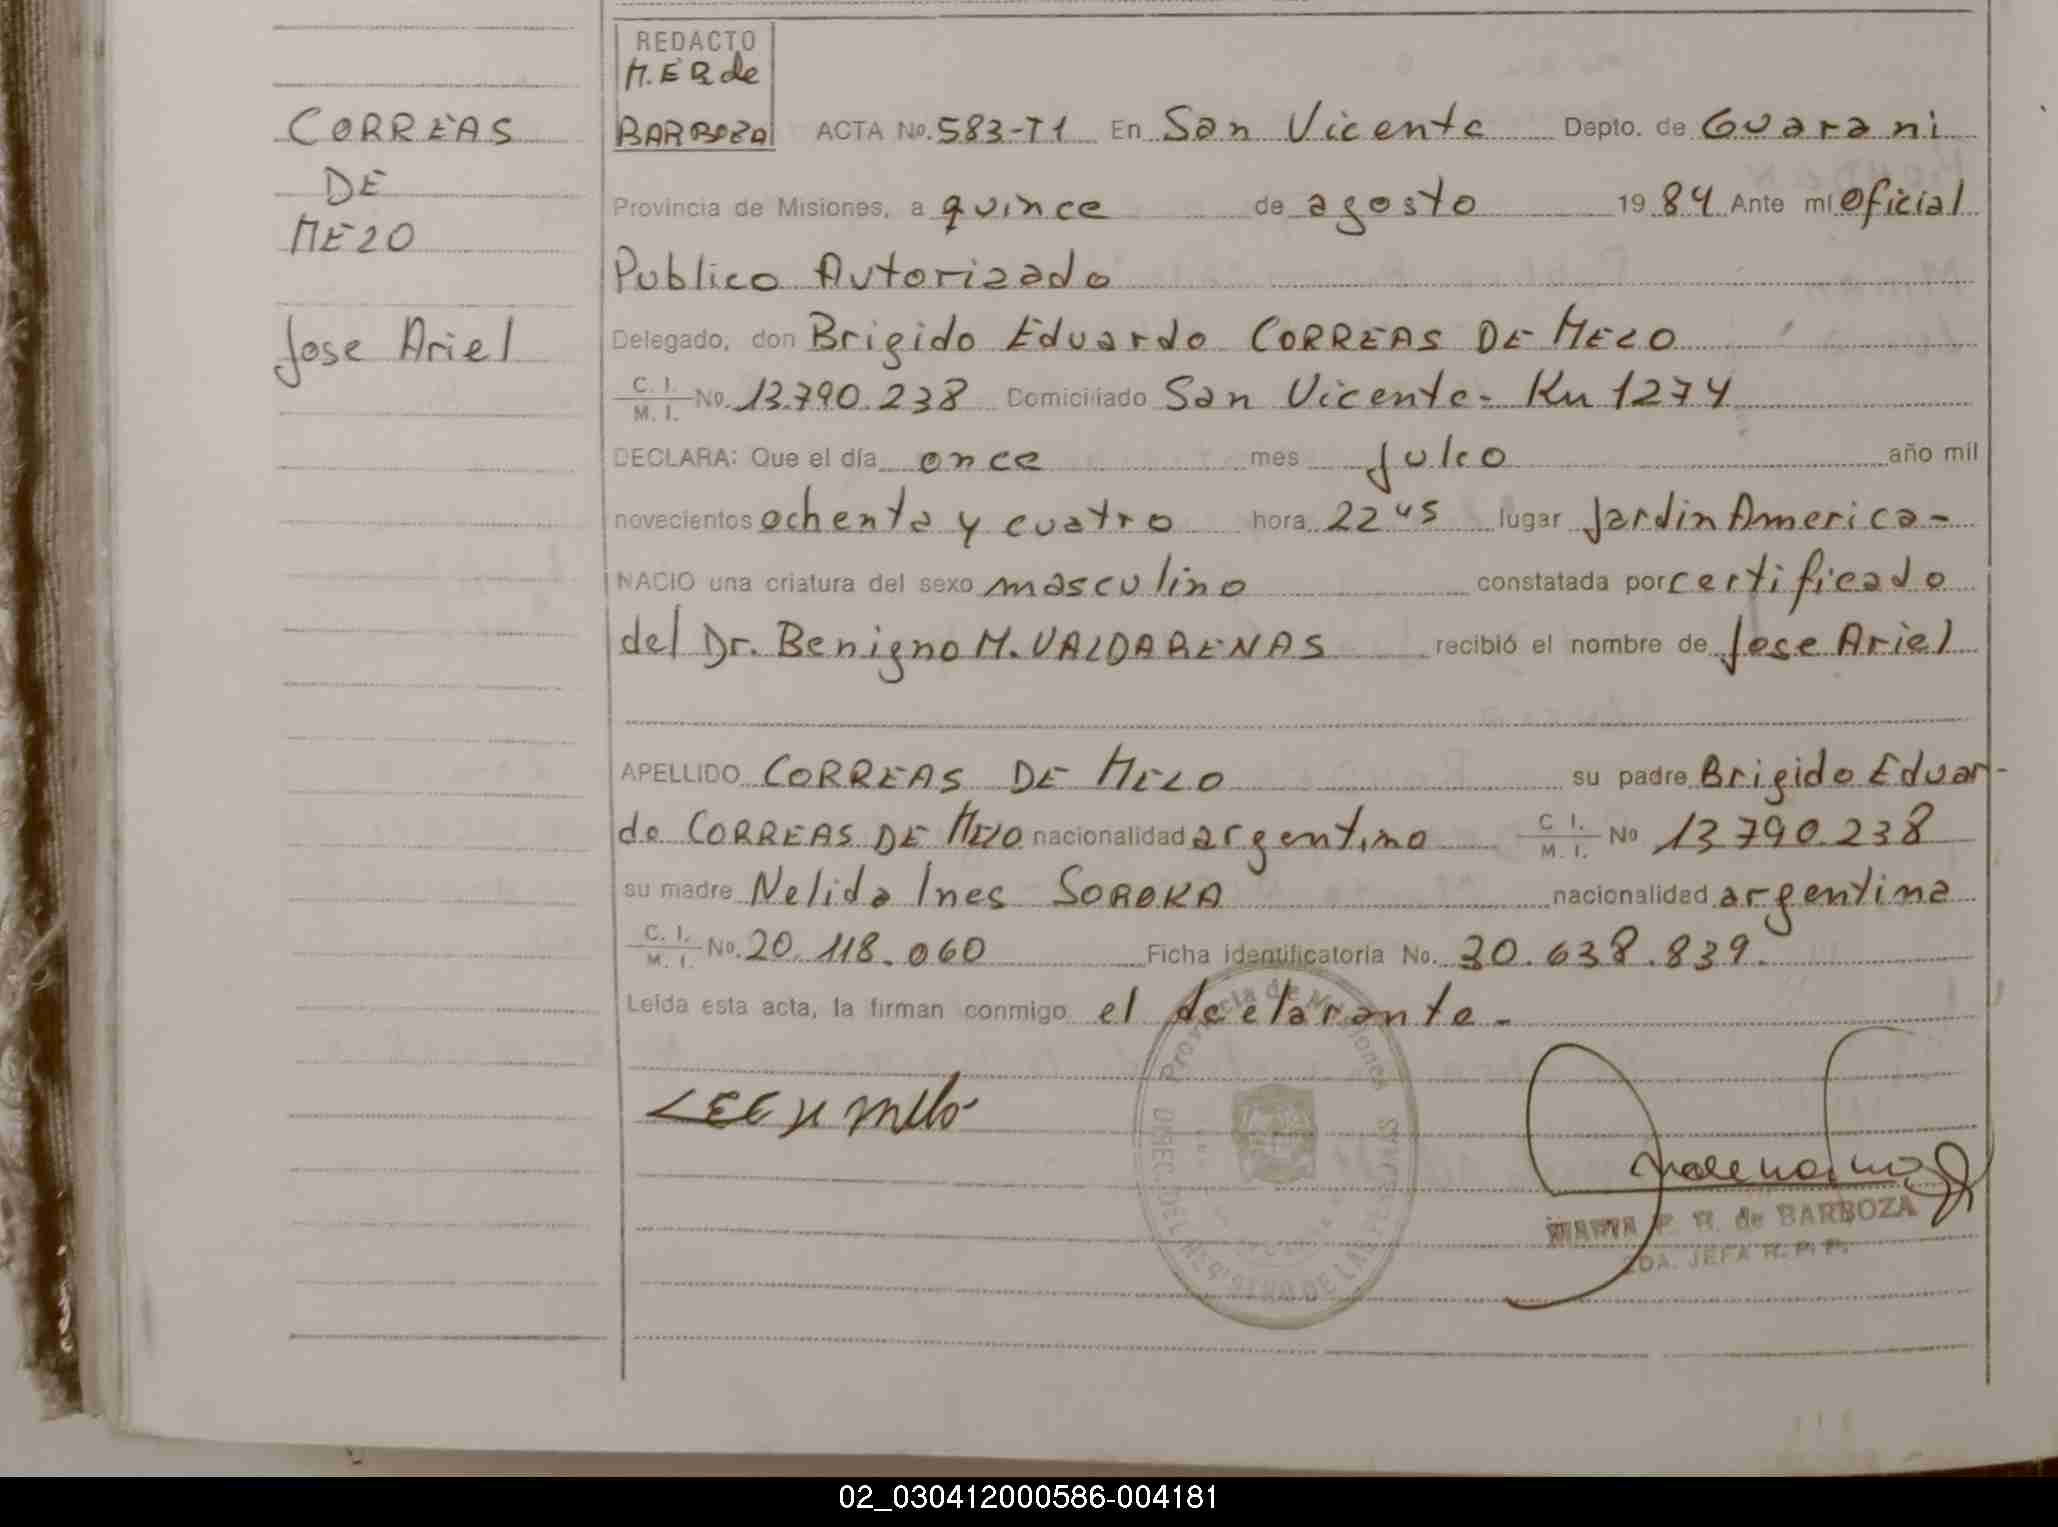 CORREAS
DE
MELO
Jose Ariel
REDACTO
M.E R de
BARBOZA
ACTA No. 583-T1 En San Vicente Depto. de Guarani
Provincia de Misiones, a quince de agosto 19 84 Ante mí Oficial
Publico Autorizado
Delegado, don Brigido Eduardo CORREAS DE MELO
C. I. / M. I. No. 13.790.238 Domiciliado San Vicente - Km 1274
DECLARA: Que el día once mes Julio año mil
novecientos ochenta y cuatro hora 22 45 lugar Jardin America -
NACIO una criatura del sexo masculino constatada por certificado
del Dr. Benigno M. VALDARENAS recibió el nombre de Jose Ariel
APELLIDO CORREAS DE MELO su padre Brigido Eduar-
do CORREAS DE MELO nacionalidad argentino C I. / M. I. No 13 790.238
su madre Nelida Ines SOROKA nacionalidad argentina
C. I. / M. I. No. 20.118.060 Ficha identificatoria No. 30.638.839.
Leída esta acta, la firman conmigo el declarante -
Provincia de Misiones
DIREC. DEL REGISTRO DE LAS PERSONAS
MARIA E. R. de BARBOZA
2DA. JEFA R. P. P.
02_030412000586-004181